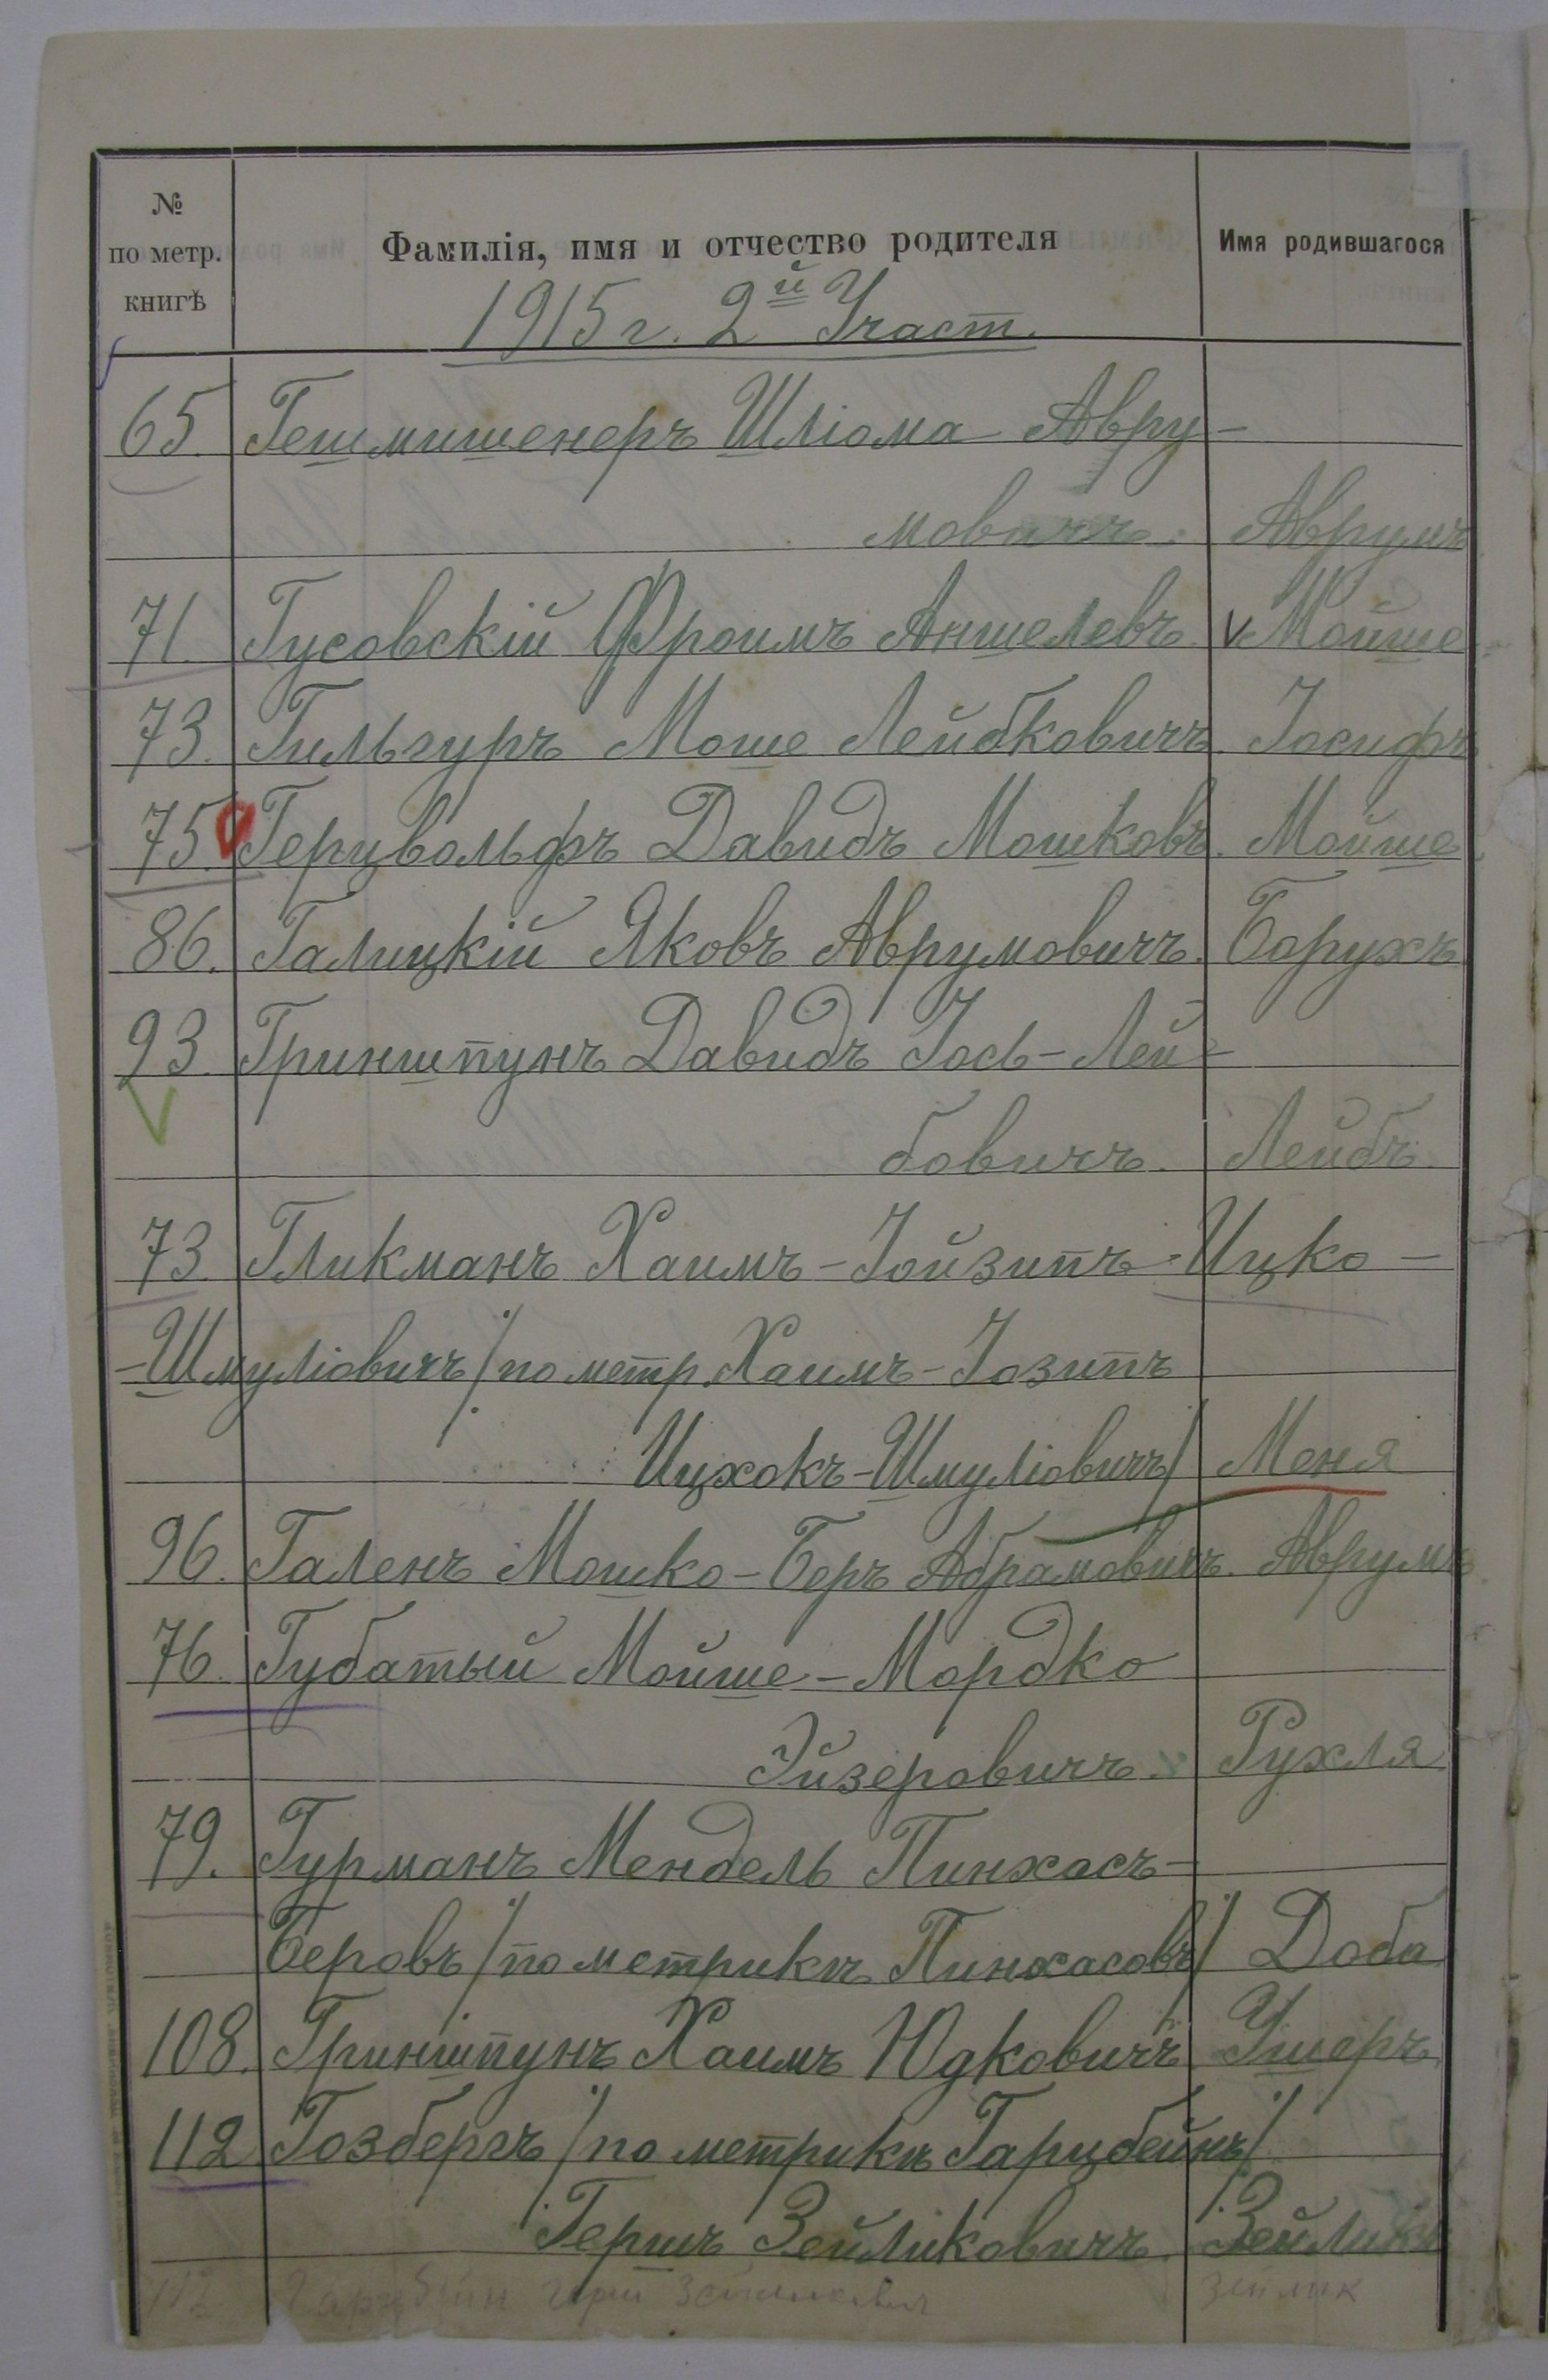 № по метр. книгѣ Фамилія, имя и отчество родителя Имя родившагося
1915 г. 2й Участ.
65. Гешмишенеръ Шліома Авру-
мовичъ. Аврумъ
71. Гусовскій Фроимъ Аншелевъ. v Мойше
73. Гильгуръ Моше Лейбковичъ. Іосифъ
75. Герцвольфъ Давидъ Мошковъ. Мойше
86. Галицкій Яковъ Аврумовичъ. Борухъ
93. Гриншпунъ Давидъ Іось-Лей-
бовичъ. Лейбъ
73. Гликманъ Хаимъ-Іойзипъ-Ицко-
-Шмуліовичъ /по метр. Хаимъ-Іозипъ
Ицхокъ-Шмуліовичъ/ Меня
96. Галенъ Мошко-Беръ Абрамовичъ. Аврумъ
76. Губатый Мойше-Мордко
Эйзеровичъ. Рухля
79. Гурманъ Мендель Пинхасъ-
Беровъ /по метрикѣ Пинхасовъ/ Доба
108. Гриншпунъ Хаимъ Юдковичъ Ушеръ
112 Гозбергъ /по метрикѣ Гарцбейнъ/
Гершъ Зейликовичъ. Зейликъ
112 Гарцбейн Герш Зейликович зейлик